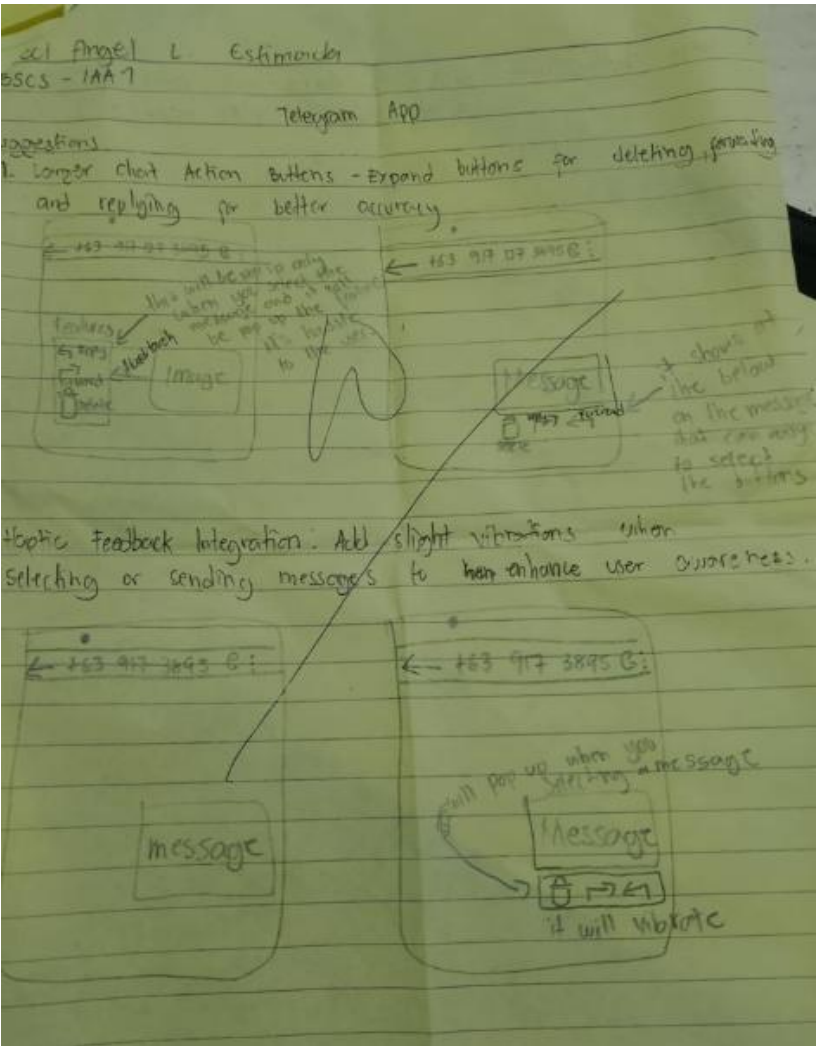 Angel L Estimanda
BSCS - 1AA1
Telegram App
uggestions
1. Larger Chat Action Buttons - Expand buttons for deleting, forwarding
and replying for better accuracy
← +63 917 127 3895 :
this will be pop up only
when you select the
message and it will
be pop up the features
it's hassle
to the user
features
reply
forward
delete
Image
← +63 917 127 3895 :
Message
it shows at
the below
on the message
that can easy
to select
the buttons
Haptic Feedback Integration: Add slight vibrations when
selecting or sending messages to enhance user awareness.
← +63 917 3895 :
message
← +63 917 3895 :
will pop up when you
selecting a message
Message
it will vibrate